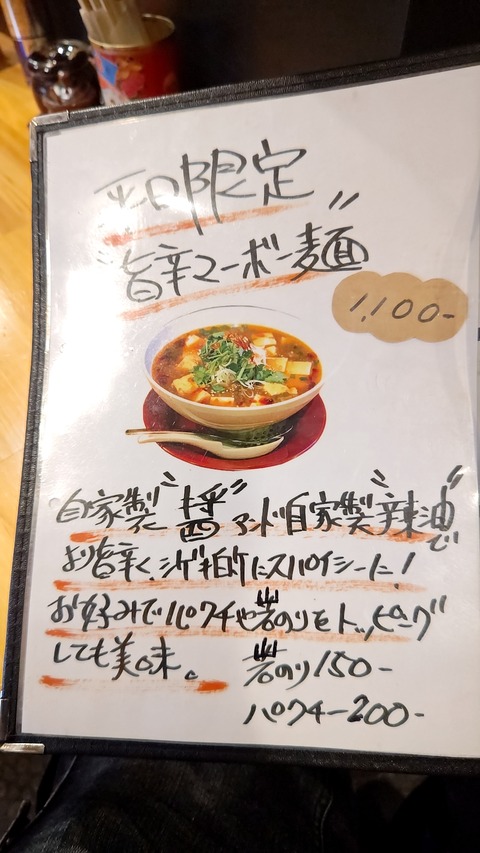 平日限定
"旨辛マーボー麺"
1,100-
自家製"醤"アンド自家製"辣油"で
より旨辛く、シゲキ的にスパイシーに!
お好みでパクチーや岩のりをトッピング
しても美味。
岩のり150-
パクチー200-